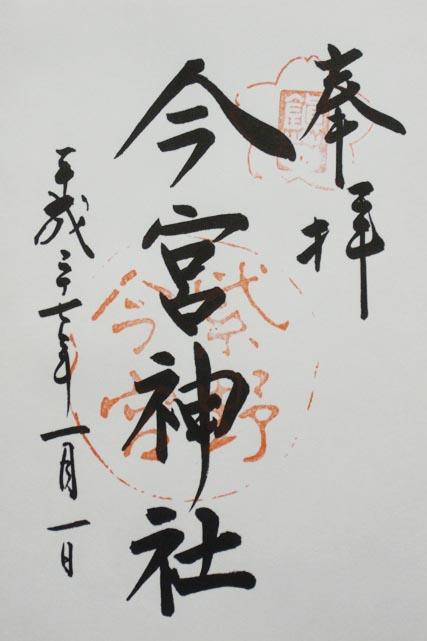 奉拝
今宮神社
平成二十七年一月一日
紫野
今宮